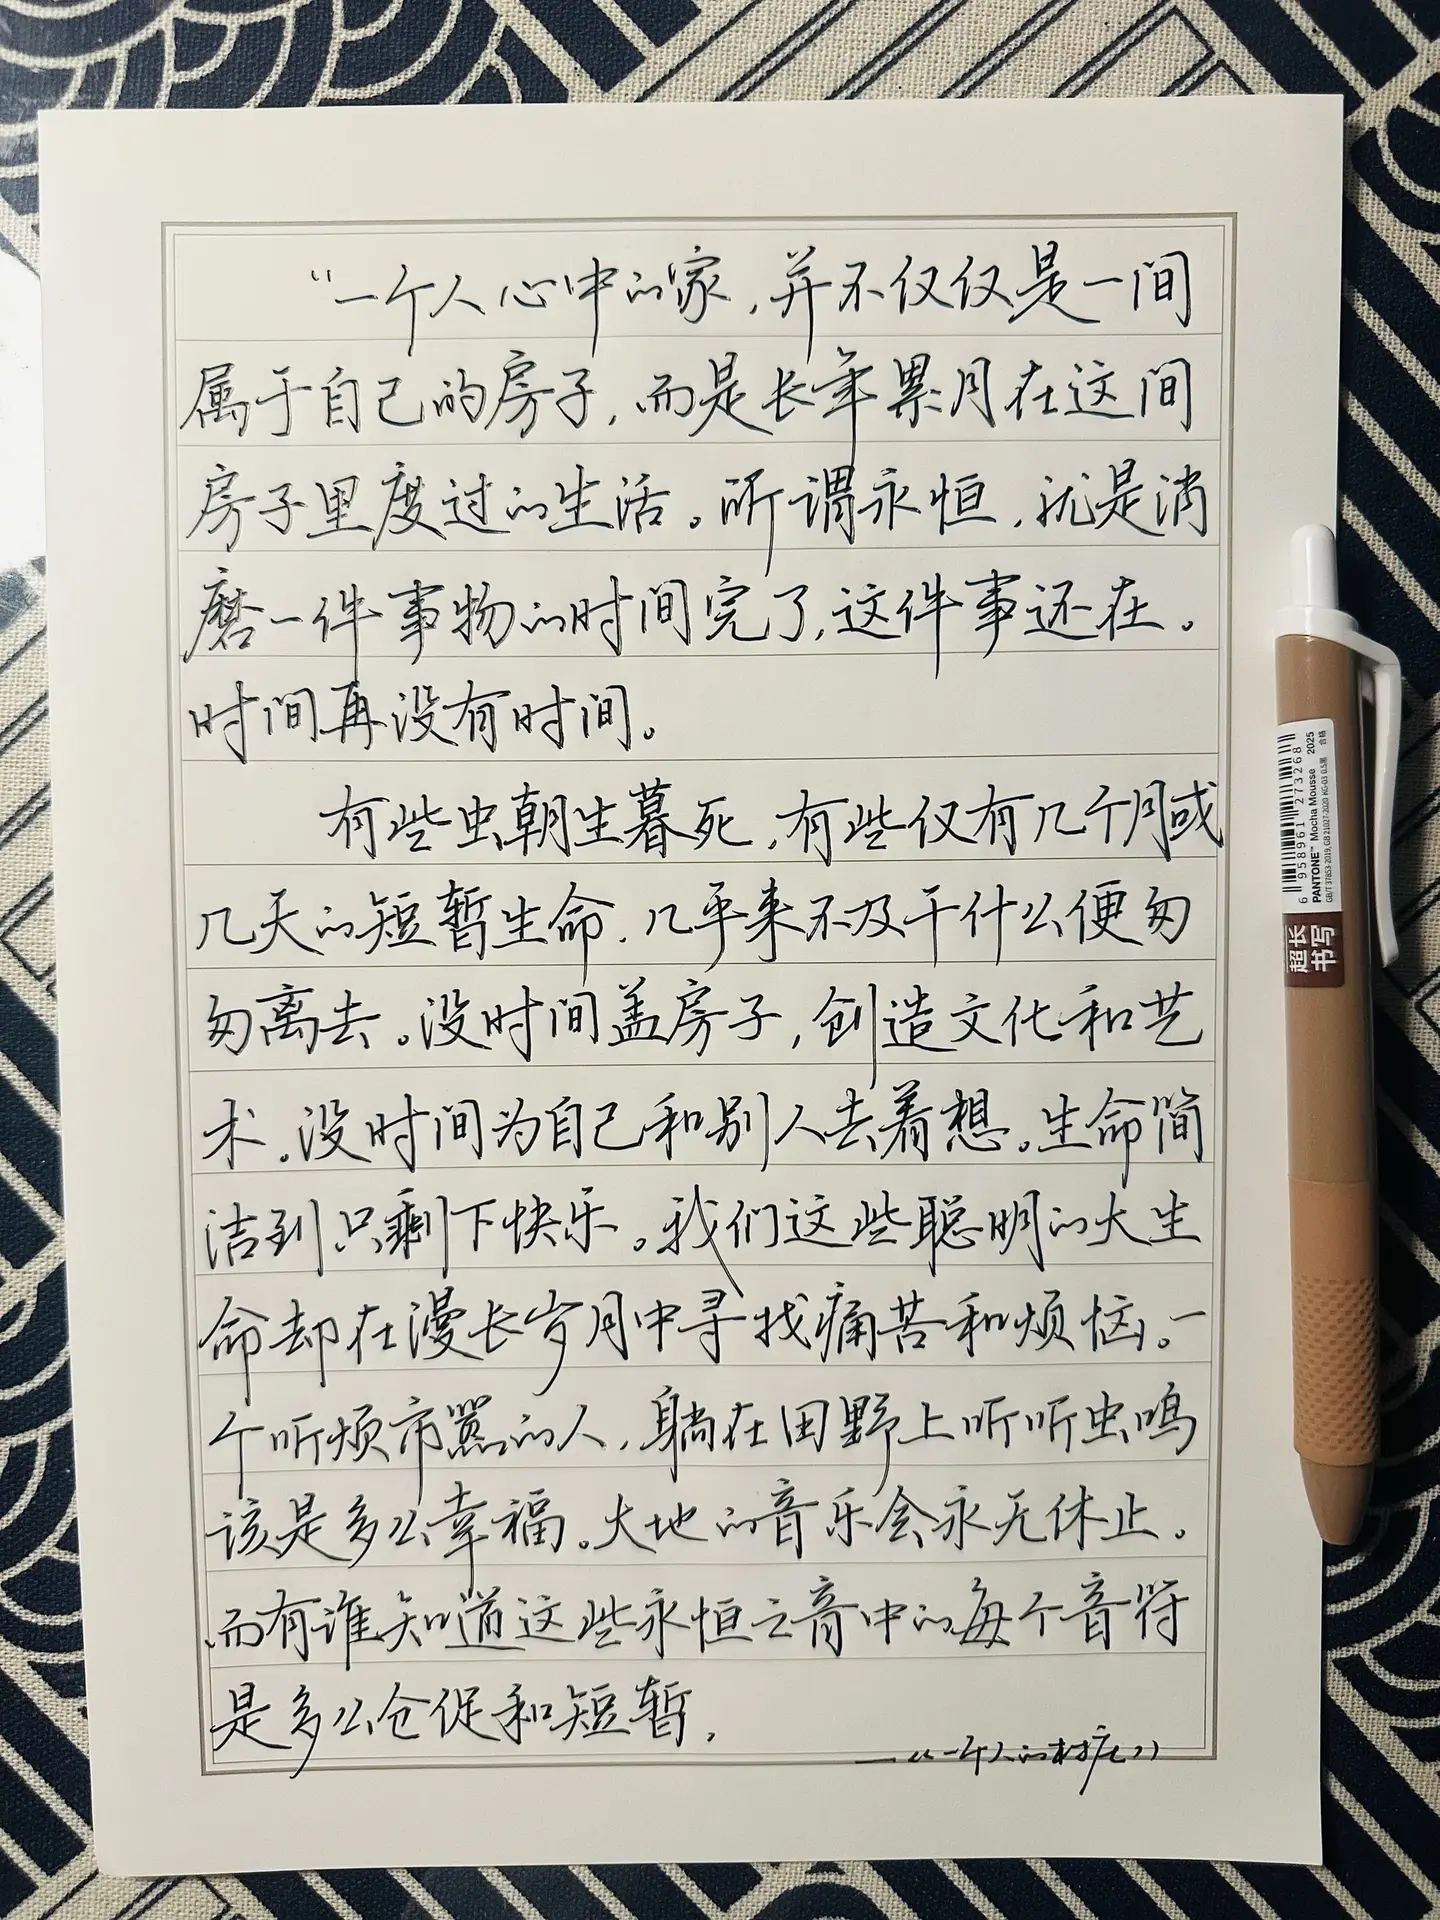 “一个人心中的家，并不仅仅是一间
属于自己的房子，而是长年累月在这间
房子里度过的生活。所谓永恒，就是消
磨一件事物的时间完了，这件事还在。
时间再没有时间。
有些虫朝生暮死，有些仅有几个月或
几天的短暂生命，几乎来不及干什么便匆
匆离去。没时间盖房子，创造文化和艺
术。没时间为自己和别人去着想。生命简
洁到只剩下快乐。我们这些聪明的大生
命却在漫长岁月中寻找痛苦和烦恼。一
个听烦市嚣的人，躺在田野上听听虫鸣
该是多么幸福。大地的音乐会永无休止。
而有谁知道这些永恒之音中的每个音符
是多么仓促和短暂，
——《一个人的村庄》
6 958961 273268
PANTONE™ Mocha Mousse 2025
GB/T 37853-2019, GB 21027-2020 KG-03 0.5黑 合格
超长
书写